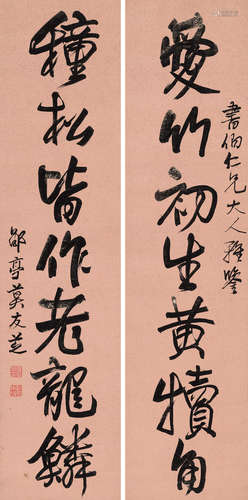 書伯仁兄大人雅鑒
愛竹初生黃犢角
種松皆作老龍鱗
郘亭莫友芝